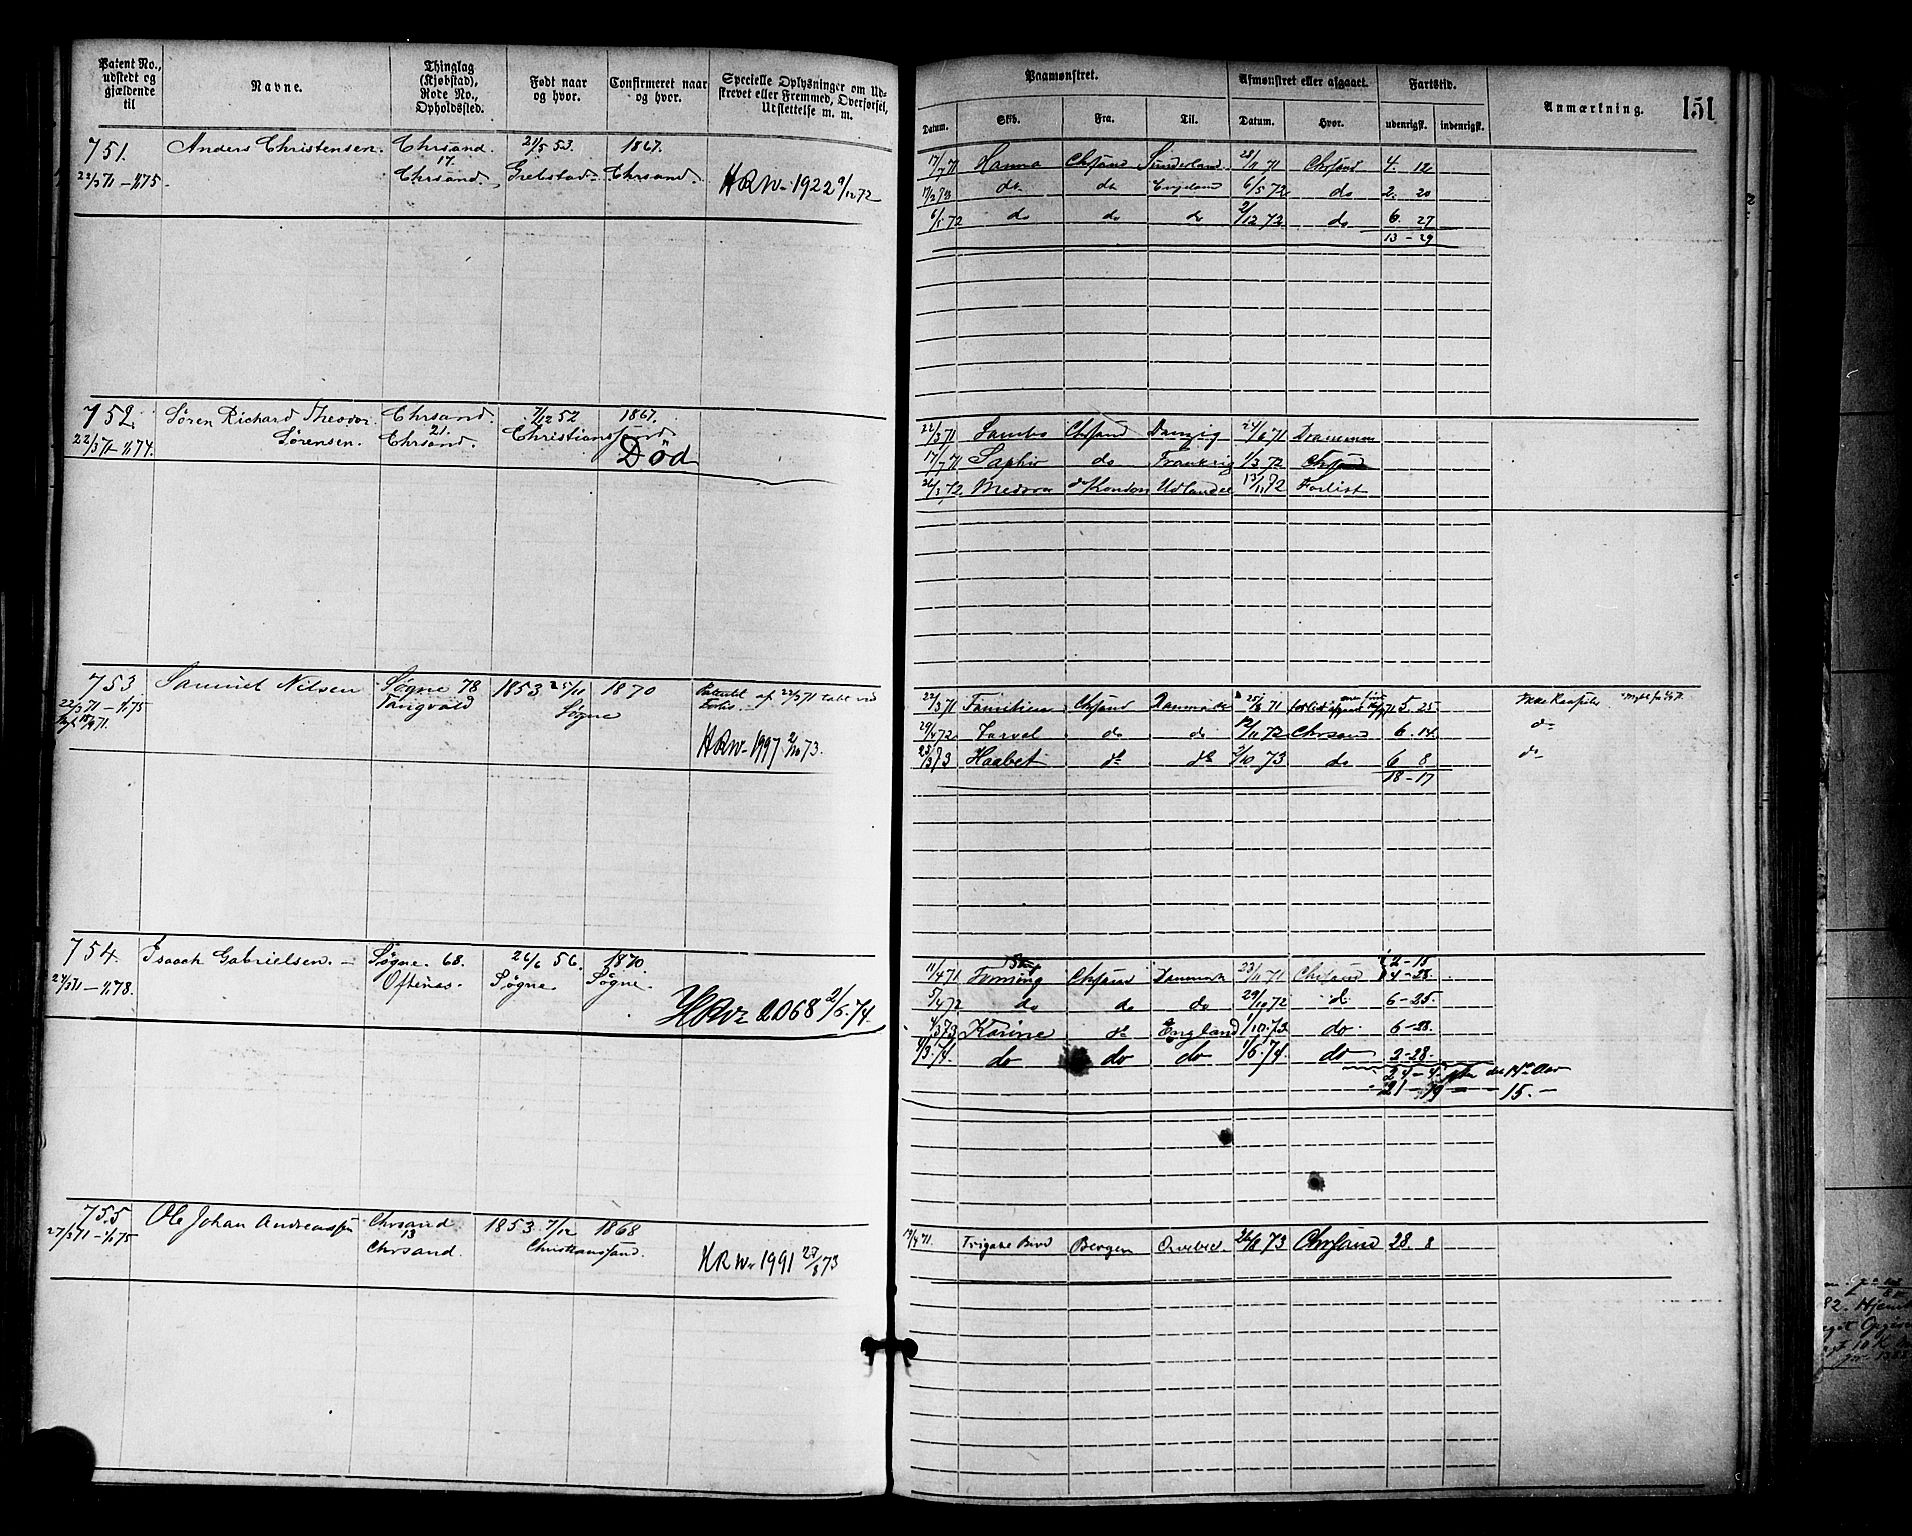 Patent No., udstedt og gjældende til
Navne.
Thinglag (Kjøbstad), Rode No., Opholdssted.
Født naar og hvor.
Confirmeret naar og hvor.
Specielle Oplysninger om Udskrevet eller Fremmed, Overførsel, Udslettelse m. m.
Paamønstret.
Afmønstret eller afgaaet.
Fartstid.
Anmærkning.
151
Datum. Skib. Fra. Til. Datum. Hvor. udenrigsk. indenrigsk.
751. Anders Christensen. Chrsand. 53. 1867.
17.
22/3 71 - 1/1 75. Chrsand. Grebstad. Chrsand. HRW - 1922 9/12 72
17/7 71 Hanna Chrsand Sunderland 28/11 71 Chrsand 4. 12
do do England 6/5 72 do 2. 20
6/5 72 do do do 2/12 72 do 6. 27
13 - 29
752. Søren Richard Theodor Chrsand. 7/12 52. 1867.
Sørensen. 21.
22/3 71 - 1/1 74. Chrsand. Christianssand.
Død
22/3 71 Chrsand Danzig 24/6 71 Drammen
17/7 71 Saphir do Frankrig 1/3 72 Chrsand
26/3 72 Medora London Udlandet 13/11 72 Forlist
753. Samuel Nilsen Søgne 78 1853. 25/11 1870
22/3 71 - 1/1 75 Tangvald Søgne
af 22/3 71 tabt ved Forlis
HRW - 1997 2/10 73.
22/3 71 Familien Chrsand Danmark 25/8 71 5. 25
29/4 72 do do 12/11 72 Chrsand 6. 14. do
25/3 73 Haabet do do 2/10 73 do 6 8 do
18 - 17
754. Isaach Gabrielsen. Søgne. 68. 26/6 56. 1870.
24/3 71 - 1/1 78. Oftenæs. Søgne. Søgne.
HRW 2068 2/6. 74.
2 - 15
11/4 71 Chrsand Danmark 23/11 71 Chrsand 4 - 28.
5/4 72 do do do 29/10 72 do 6 - 25.
4/3 73 Karine do England 1/10. 73. do. 6 - 28.
4/3. 74. do do do 1/6. 74. do 2 - 28.
24 - 4
21 - 19 - 15. -
755. Ole Johan Andreassen Chrsand 1853. 7/12 1868
13
27/3 71 - 1/1 75 Chrsand. Christianssand.
HRW - 1991 27/8 73
17/4 71. Bergen 26/8 73 Chrsand 28. 8